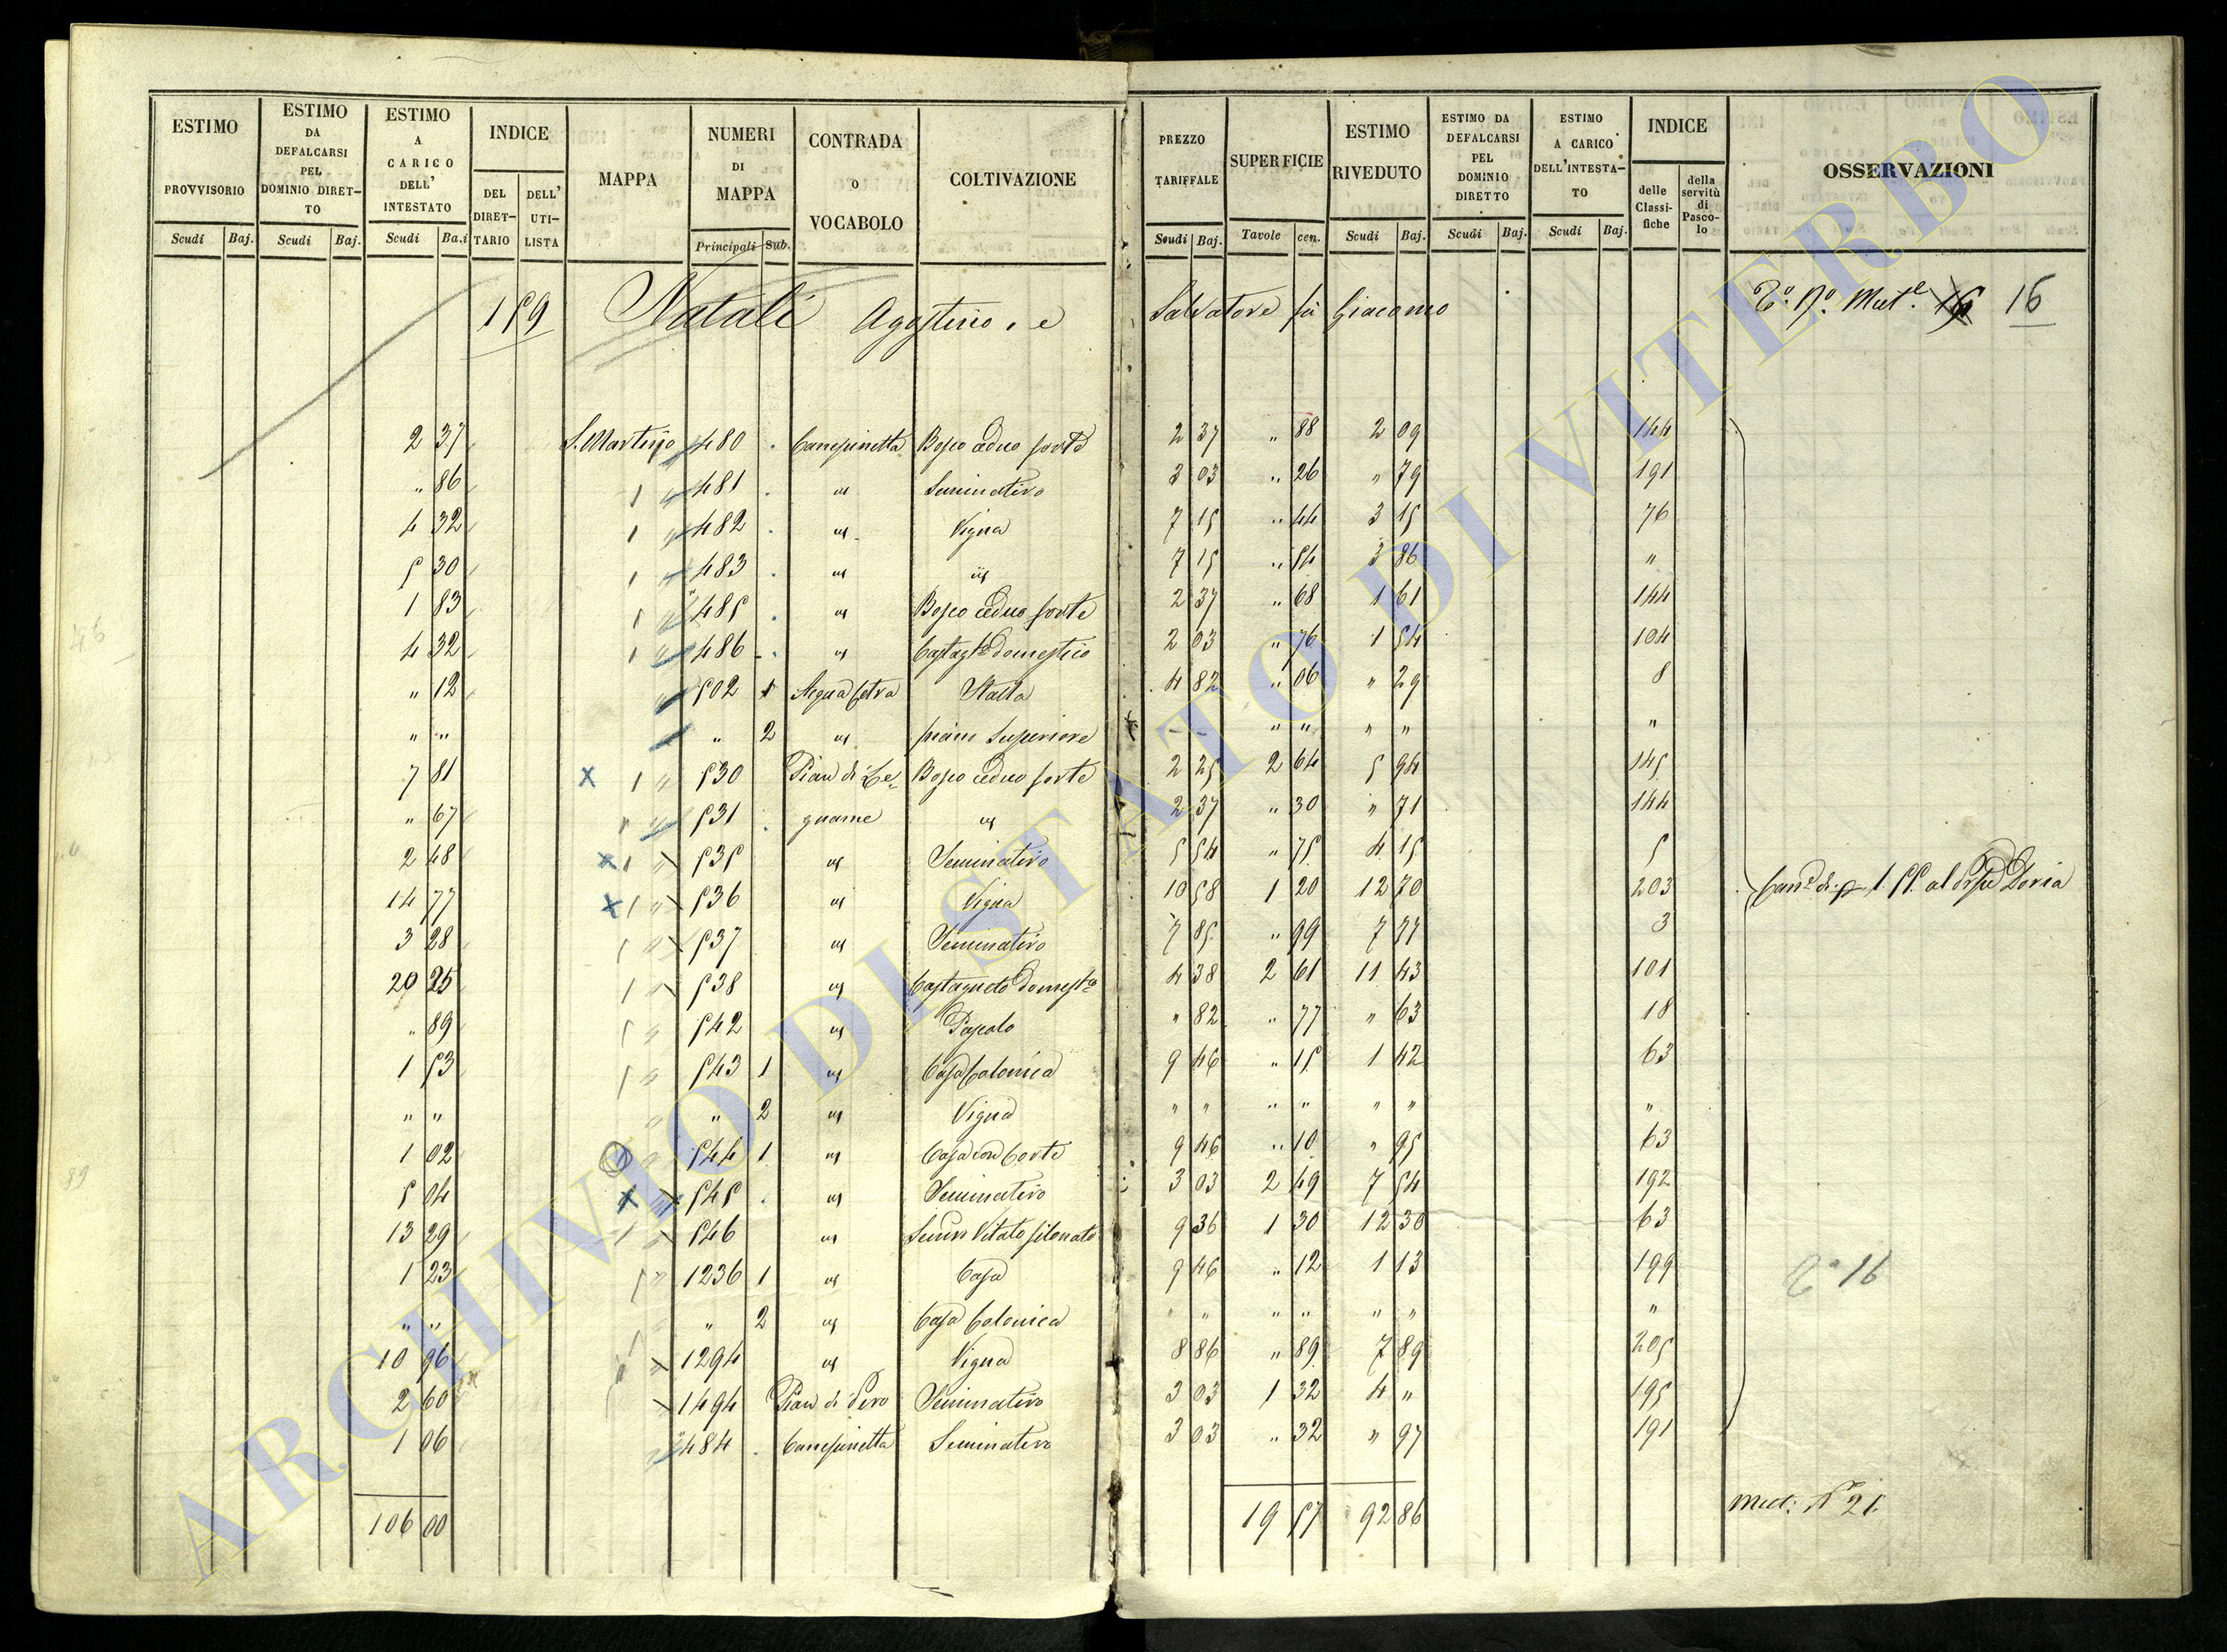 ESTIMO PROVVISORIO | ESTIMO DA DEFALCARSI PEL DOMINIO DIRETTO | ESTIMO A CARICO DELL' INTESTATO | INDICE | MAPPA | NUMERI DI MAPPA | CONTRADA O VOCABOLO | COLTIVAZIONE | PREZZO TARIFFALE | SUPERFICIE | ESTIMO RIVEDUTO | ESTIMO DA DEFALCARSI PEL DOMINIO DIRETTO | ESTIMO A CARICO DELL'INTESTATO | INDICE | OSSERVAZIONI
DEL DIRETTARIO | DELL' UTILISTA | delle Classifiche | della servitù di Pascolo
Scudi | Baj. | Scudi | Baj. | Scudi | Ba.i | Principali | Sub. | Scudi | Baj. | Tavole | cen. | Scudi | Baj. | Scudi | Baj. | Scudi | Baj.
159 Natali Agostino, e Salvatore fù Giacomo 16
2 37 | S. Martino | 480 | Canepinetta | Bosco ceduo forte | 2 37 | " 88 | 2 09 | 144
" 86 | 481 | " | Seminativo | 3 03 | " 26 | " 79 | 191
4 32 | 482 | " | Vigna | 7 15 | " 44 | 3 15 | 76
5 30 | 483 | " | " | 7 15 | " 54 | 3 86 | "
1 83 | 485 | " | Bosco ceduo forte | 2 37 | " 68 | 1 61 | 144
4 32 | 486 | " | Castagto domestico | 2 03 | " 76 | 1 54 | 104
" 12 | 502 | 1 | Acqua Cetra | Stalla | 4 82 | " 06 | " 29 | 8
" " | " | 2 | " | piano Superiore | - - | " " | " " | "
7 81 | 530 | Pian di Le= | Bosco ceduo forte | 2 25 | 2 64 | 5 94 | 145
" 67 | 531 | gname | " | 2 37 | " 30 | " 71 | 144
2 48 | 535 | " | Seminativo | 5 54 | " 75 | 4 15 | 5
14 77 | 536 | " | Vigna | 10 58 | 1 20 | 12 70 | 203 | al Doria
3 28 | 537 | " | Seminativo | 7 85 | " 99 | 7 77 | 3
20 25 | 538 | " | Castagneto Domest.co | 4 38 | 2 61 | 11 43 | 101
" 89 | 542 | " | Pascolo | " 82 | " 77 | " 63 | 18
1 53 | 543 | 1 | " | Casa Colonica | 9 46 | " 15 | 1 42 | 63
" " | " | 2 | " | Vigna | " " | " " | " " | "
1 02 | 544 | 1 | " | Casa con Corte | 9 46 | " 10 | " 95 | 63
5 04 | 545 | " | Seminativo | 3 03 | 2 49 | 7 54 | 192
13 29 | 546 | " | Semin Vitato | 9 36 | 1 30 | 12 30 | 63
1 23 | 1236 | 1 | " | Casa | 9 46 | " 12 | 1 13 | 199
" " | " | 2 | " | Casa Colonica | " " | " " | " " | "
10 96 | 1294 | " | Vigna | 8 86 | " 89 | 7 89 | 205
2 60 | 1494 | Pian di Pero | Seminativo | 3 03 | 1 32 | 4 " | 195
1 06 | 484 | Canepinetta | Seminativo | 3 03 | " 32 | " 97 | 191
106 00 | 19 57 | 92 86 | Mut: No 21
ARCHIVIO DI STATO DI VITERBO